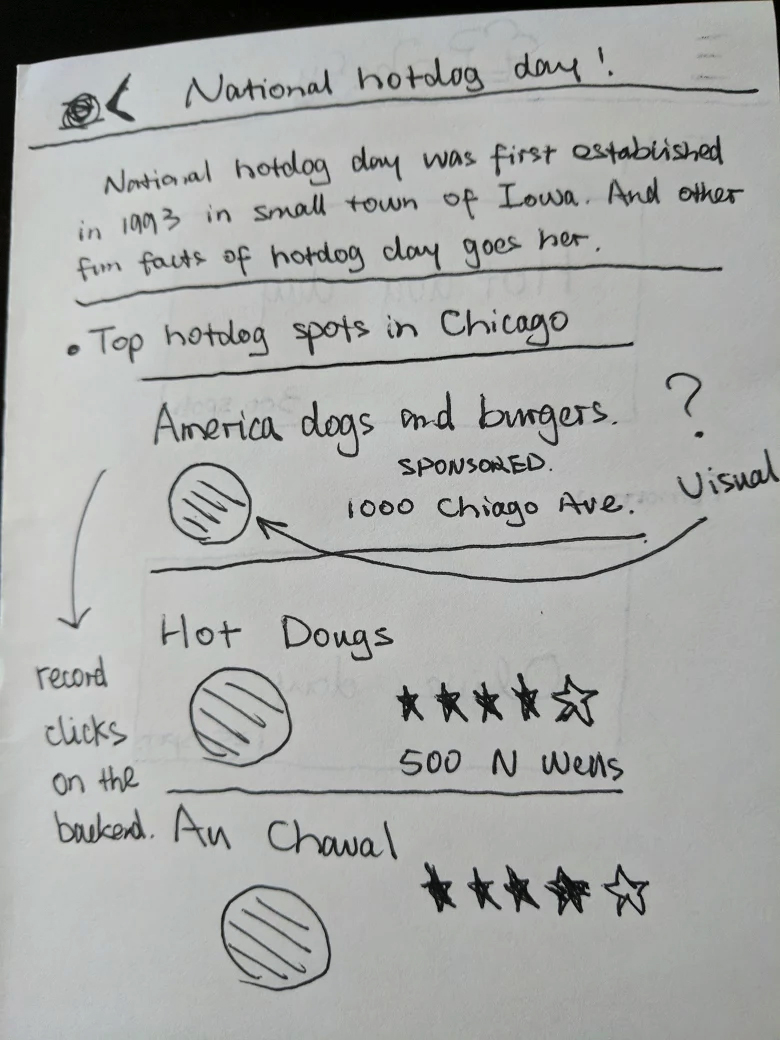 National hotdog day!
National hotdog day was first established
in 1993 in small town of Iowa. And other
fun facts of hotdog day goes her.
• Top hotdog spots in Chicago
America dogs and burgers. ?
SPONSORED. Visual
1000 Chiago Ave.
Hot Dougs
500 N Wells
record
clicks
on the
backend.
Au Chaval